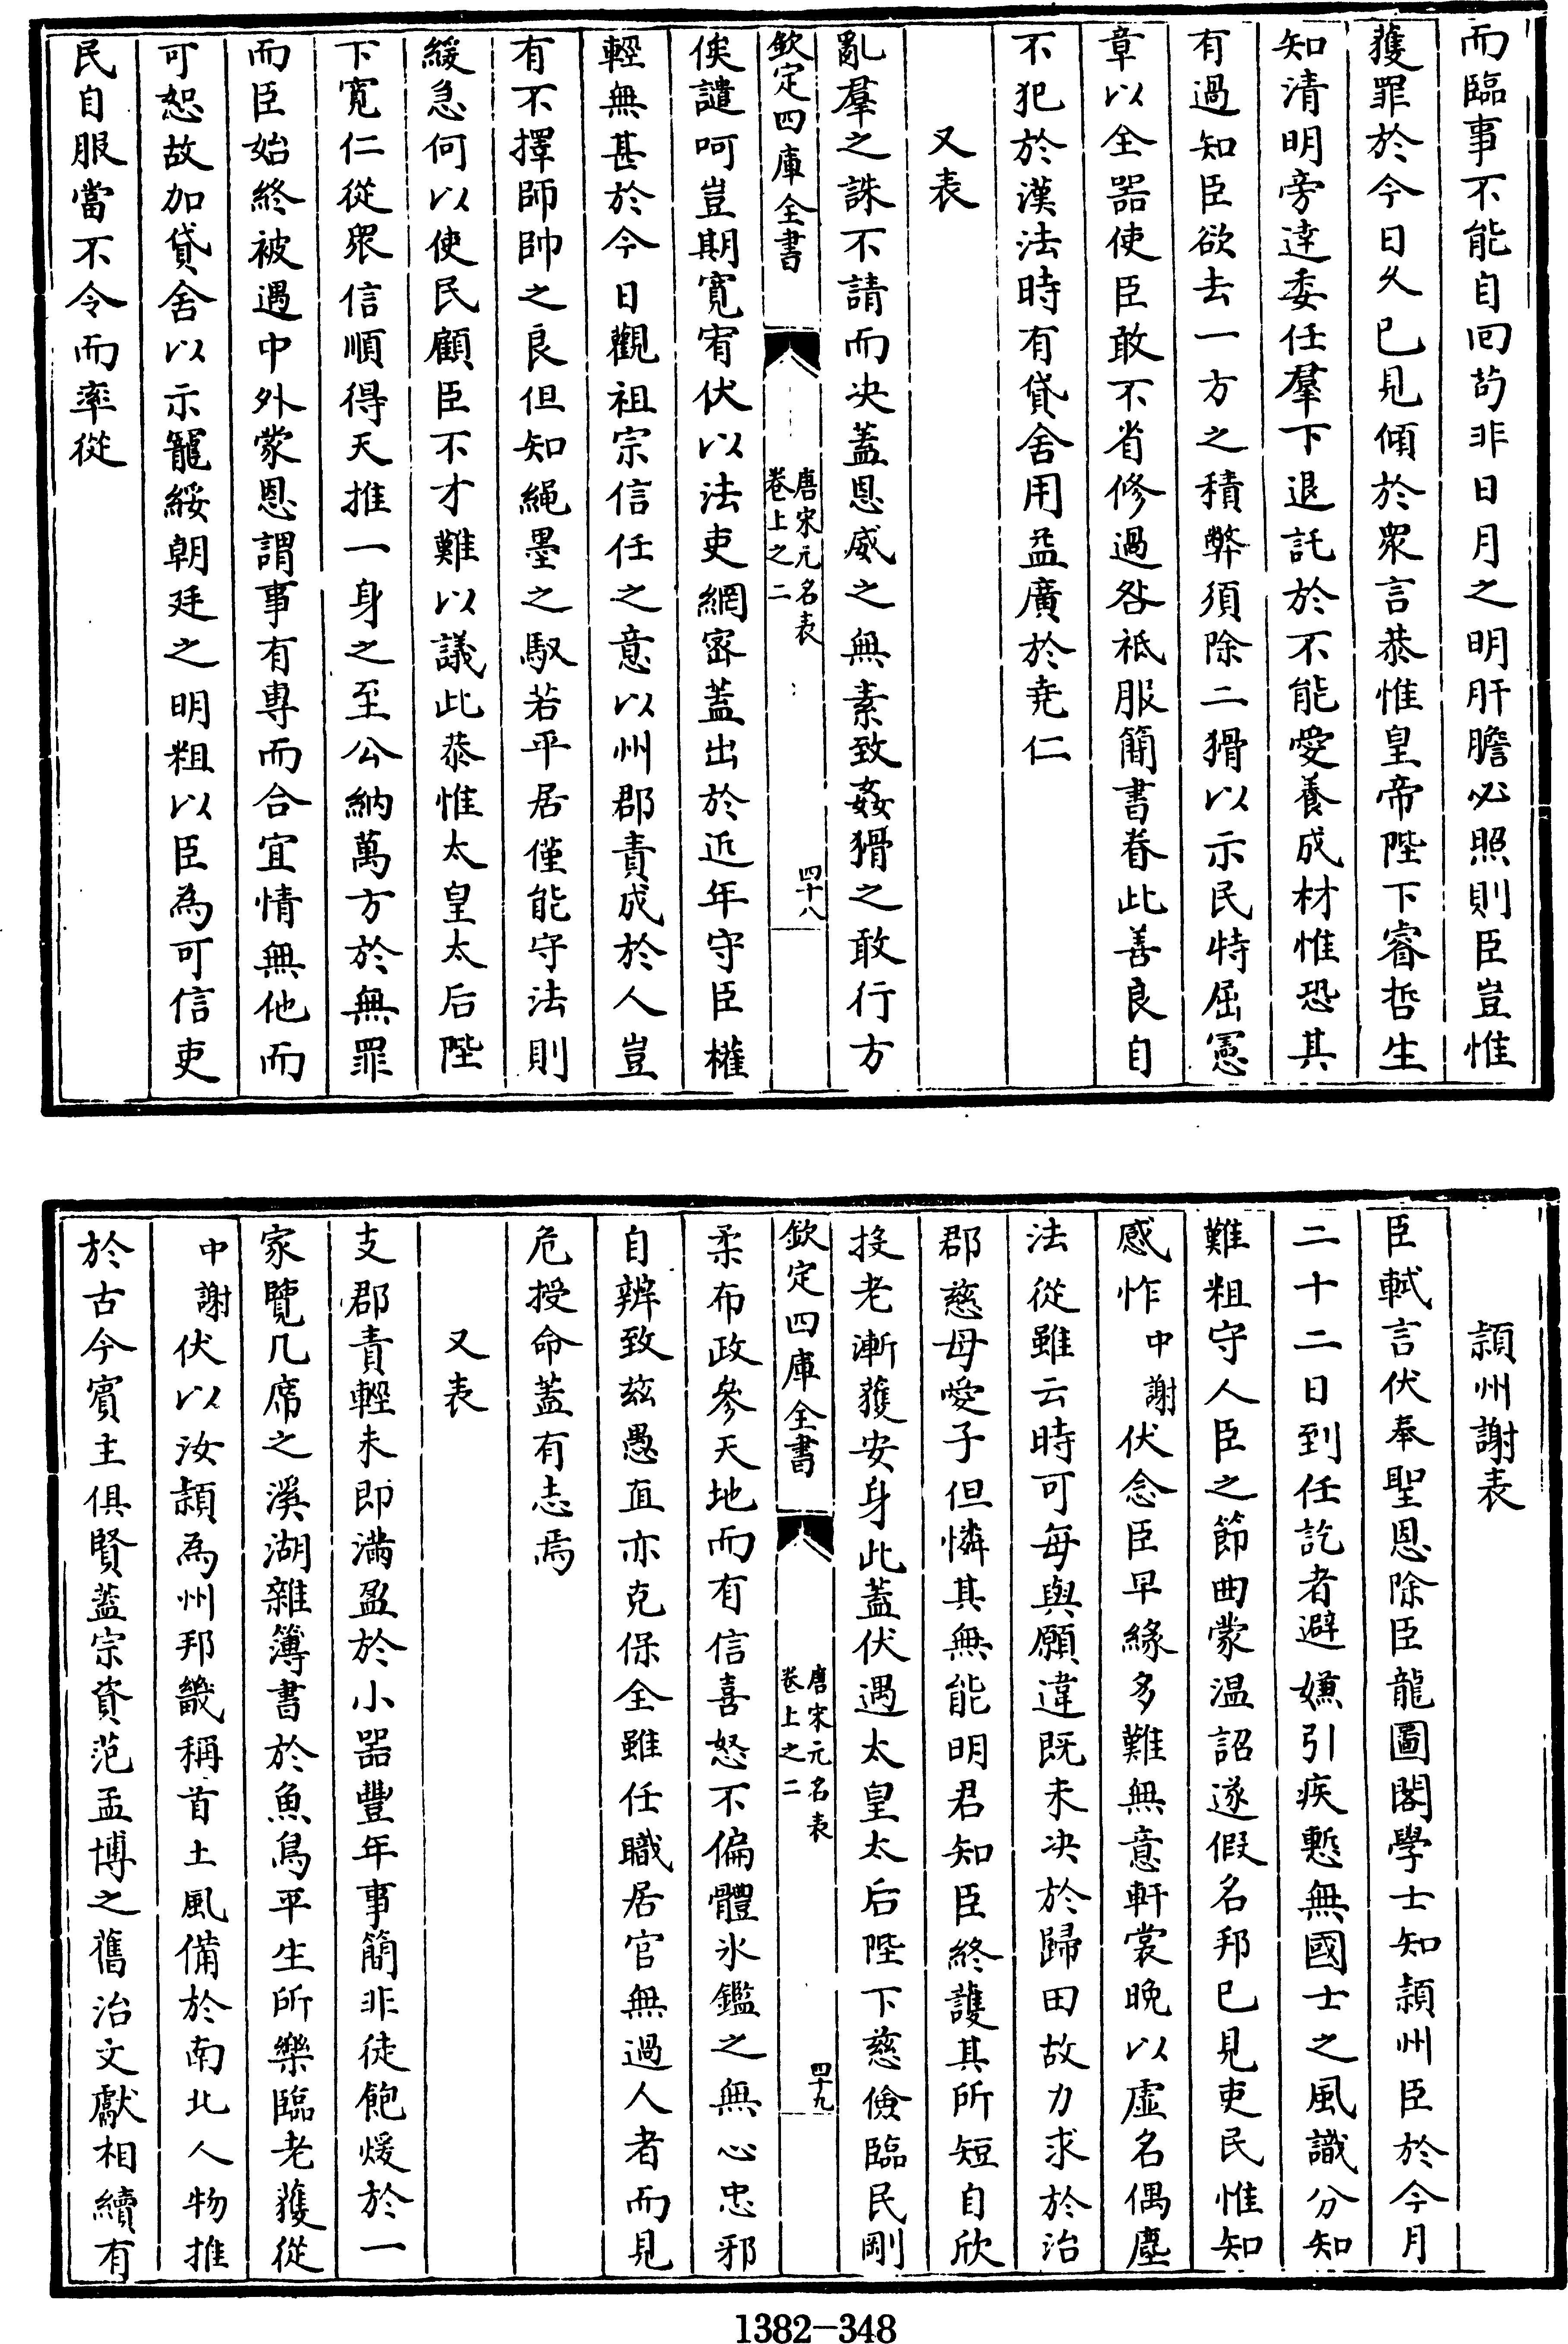 而臨事不能自回茍非日月之明肝膽必照則臣豈惟
獲罪於今日久已見傾於衆言恭惟皇帝陛下睿哲生
知清明旁達委任羣下退託於不能愛養成材惟恐其
有過知臣欲去一方之積弊須除二猾以示民特屈憲
章以全器使臣敢不省修過咎祗服簡書眷此善良自
不犯於漢法時有貸舍用益廣於堯仁
又表
亂羣之誅不請而决蓋恩威之無素致姦猾之敢行方
欽定四庫全書
唐宋元名表
卷上之二
四十八
俟譴呵豈期寛宥伏以法吏網宻蓋出於近年守臣權
輕無甚於今日觀祖宗信任之意以州郡責成於人豈
有不擇師帥之良但知繩墨之馭若平居僅能守法則
緩急何以使民顧臣不才難以議此恭惟太皇太后陛
下寛仁從衆信順得天推一身之至公納萬方於無罪
而臣始終被遇中外蒙恩謂事有專而合宜情無他而
可恕故加貸舍以示寵綏朝廷之明粗以臣為可信吏
民自服當不令而率從
頴州謝表
臣軾言伏奉聖恩除臣龍圖閣學士知頴州臣於今月
二十二日到任訖者避嫌引疾慙無國士之風識分知
難粗守人臣之節曲蒙温詔遂假名邦已見吏民惟知
感怍中謝伏念臣早緣多難無意軒裳晚以虚名偶塵
法從雖云時可每與願違既未决於歸田故力求於治
郡慈母愛子但憐其無能明君知臣終護其所短自欣
投老漸獲安身此蓋伏遇太皇太后陛下慈儉臨民剛
欽定四庫全書
唐宋元名表
卷上之二
四十九
柔布政參天地而有信喜怒不偏體氷鑑之無心忠邪
自辨致兹愚直亦克保全雖任職居官無過人者而見
危授命蓋有志焉
又表
支郡責輕未即滿盈於小器豐年事簡非徒飽煖於一
家覽几席之溪湖雜簿書於魚鳥平生所樂臨老獲從
中謝伏以汝頴為州邦畿稱首土風備於南北人物推
於古今賓主俱賢蓋宗資范孟博之舊治文獻相續有
1382-348